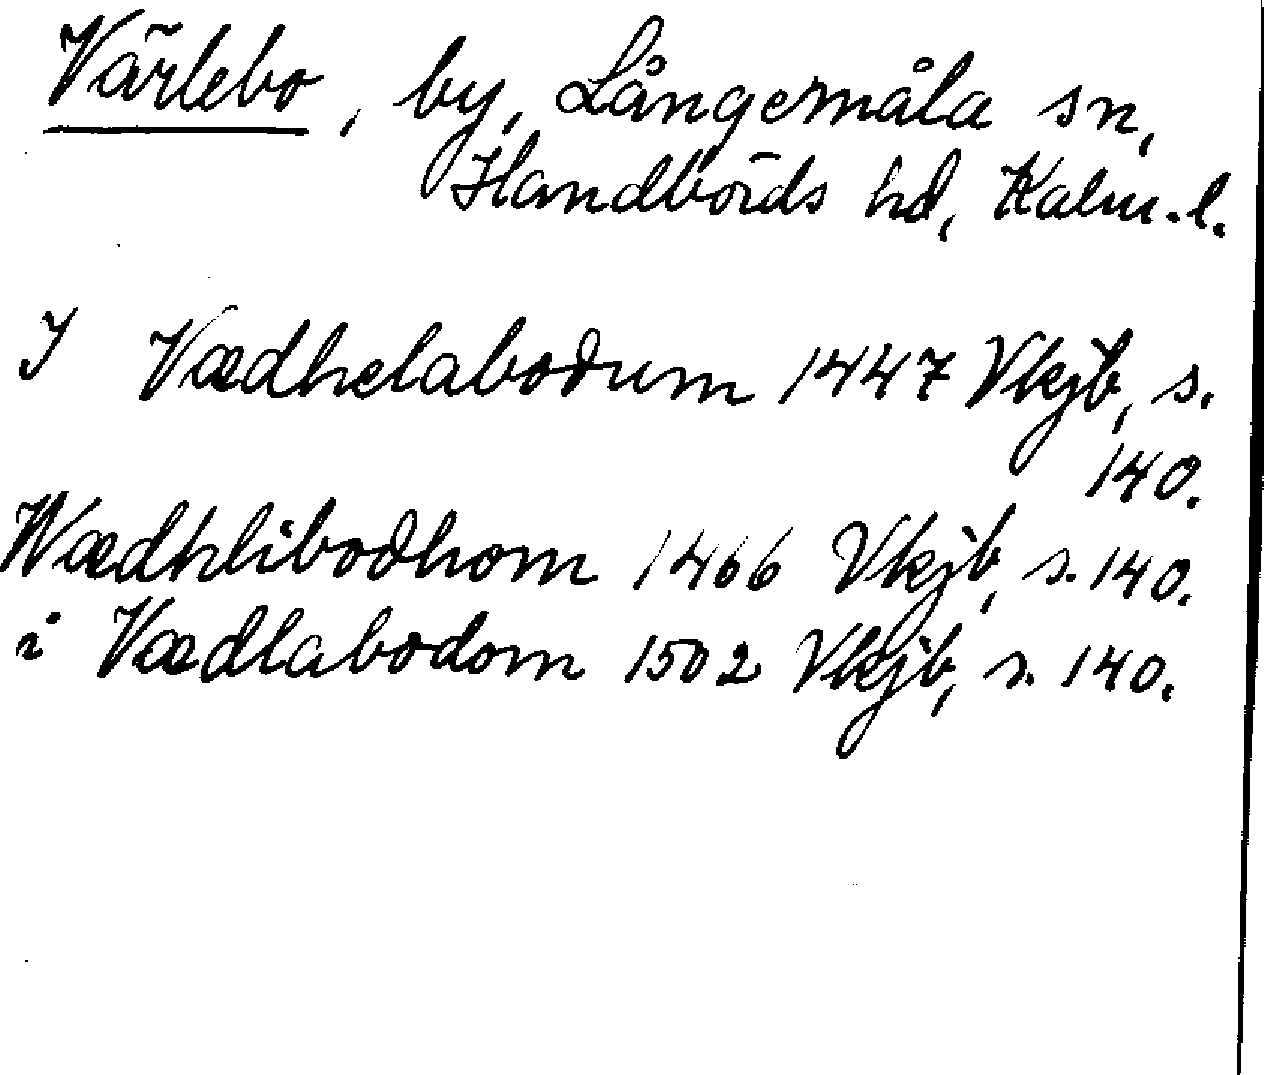 Värlebo, by, Långemåla sn,
Handbörds hd, Kalm.l.
I Vædhelabodum 1447 Vkjb, s.
140.
Wædhlibodhom 1466 Vkjb, s. 140.
i Vædlabodom 1502 Vkjb, s. 140.